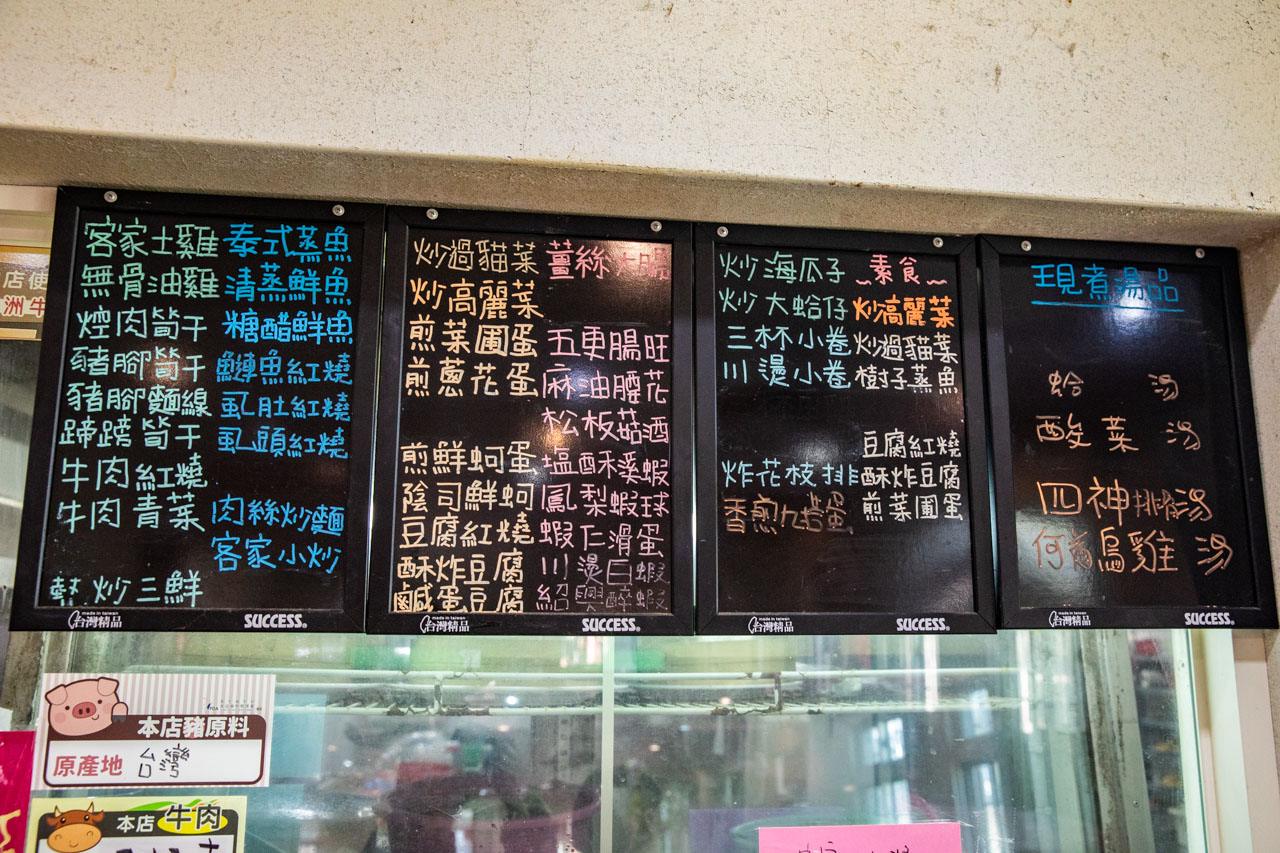 客家土雞
無骨油雞
焢肉筍干
豬腳筍干
豬腳麵線
蹄膀筍干
牛肉紅燒
牛肉青菜
熱炒三鮮
泰式蒸魚
清蒸鮮魚
糖醋鮮魚
鰱魚紅燒
虱肚紅燒
虱頭紅燒
肉絲炒麵
客家小炒
made in taiwan
台灣精品
SUCCESS®
炒過貓菜
炒高麗菜
煎菜圃蛋
煎蔥花蛋
煎鮮蚵蛋
陰司鮮蚵
豆腐紅燒
酥炸豆腐
鹹蛋豆腐
薑絲大腸
五更腸旺
麻油腰花
松板菇酒
塩酥溪蝦
鳳梨蝦球
蝦仁滑蛋
川燙白蝦
紹興醉蝦
made in taiwan
台灣精品
SUCCESS®
炒海瓜子
炒大蛤仔
三杯小卷
川燙小卷
炸花枝排
香煎九층蛋
素食
炒高麗菜
炒過貓菜
樹子蒸魚
豆腐紅燒
酥炸豆腐
煎菜圃蛋
made in taiwan
台灣精品
SUCCESS®
現煮湯品
蛤 湯
酸菜 湯
四神排湯
何首烏雞湯
made in taiwan
台灣精品
SUCCESS®
店使
洲牛
本店豬原料
原產地 台灣
本店 牛肉